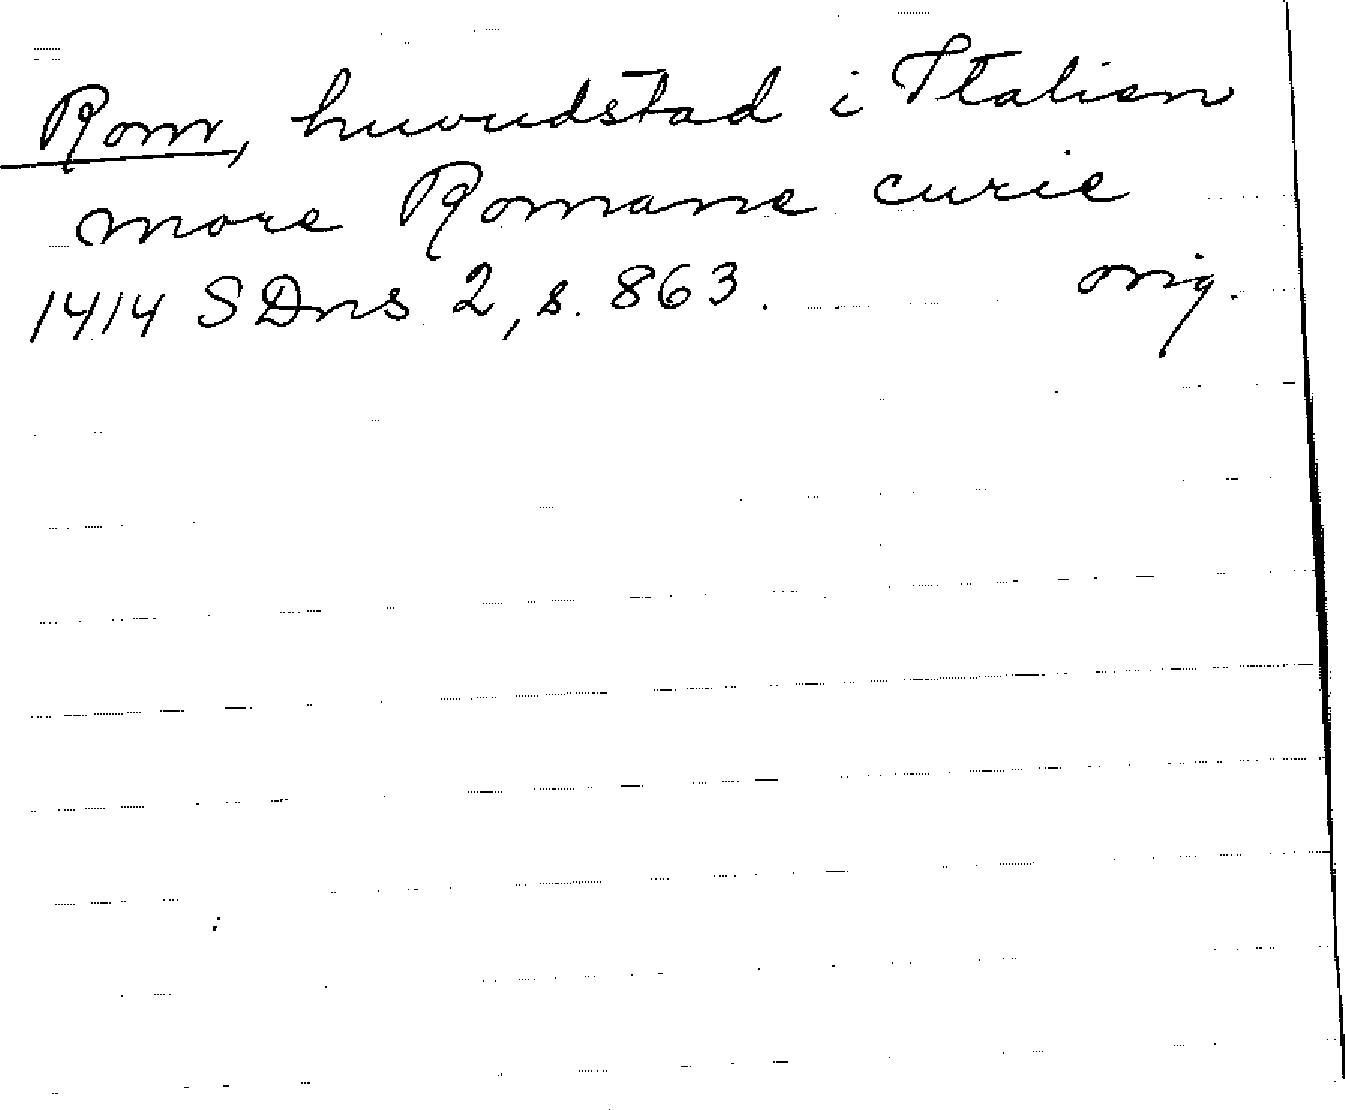 Rom, huvudstad i Italien
more Romane curie
1414 SDns 2, s. 863. orig.